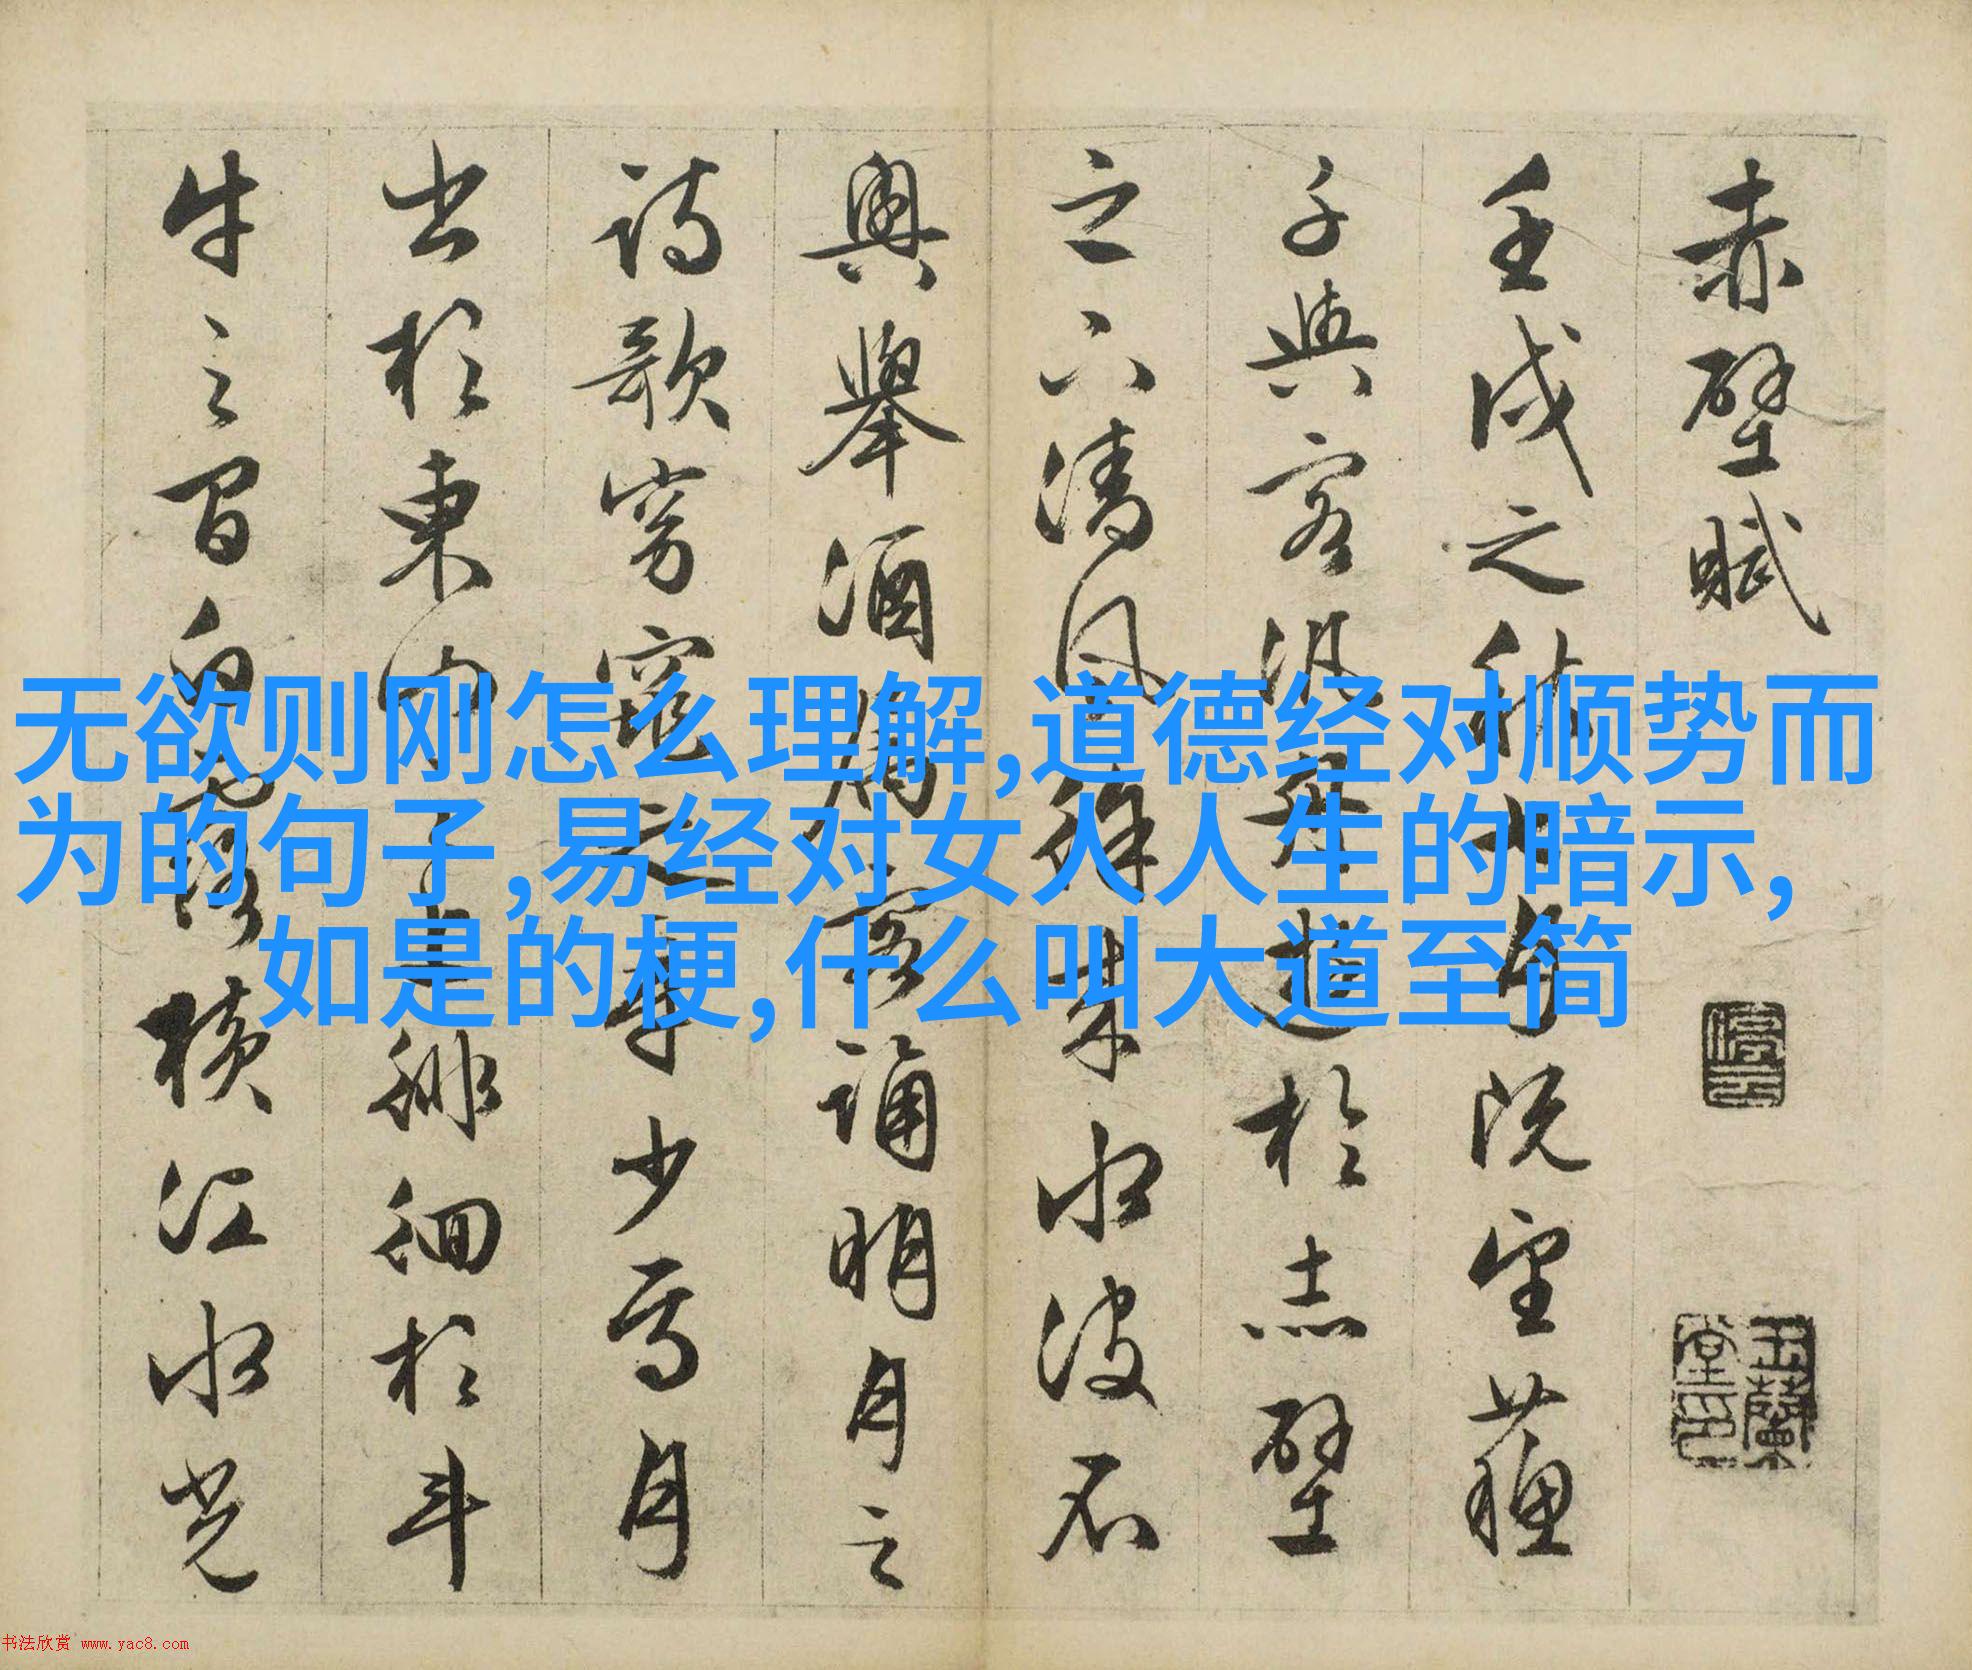 赤壁賦
壬戌之秋七月既望蘓
子與客汎舟遊於赤壁
之下清風徐来水波不
興舉酒屬客誦明月之
詩歌窈窕之章少焉月
出於東山之上徘徊於斗
牛之間白露横江水光
停雲
玉蘭堂印
无欲则刚怎么理解,道德经对顺势而
为的句子,易经对女人人生的暗示,
如是的梗,什么叫大道至简
书法欣赏 www.yac8.com